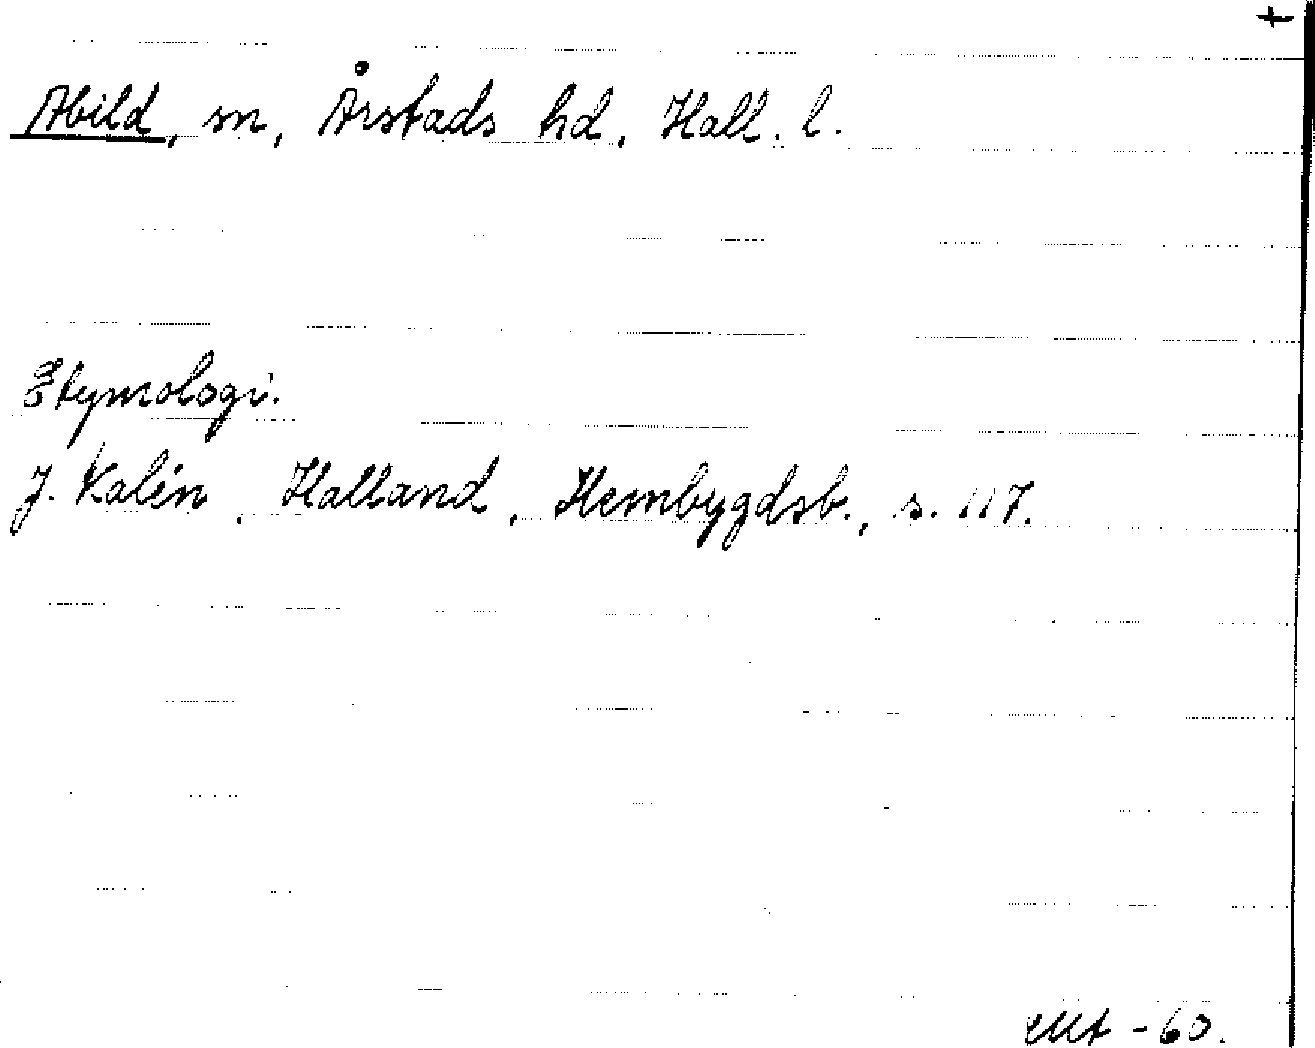 +
Abild, sn, Årstads hd, Hall. l.
Etymologi.
J. Kalén, Halland, Hembygdsb., s. 117.
-60.